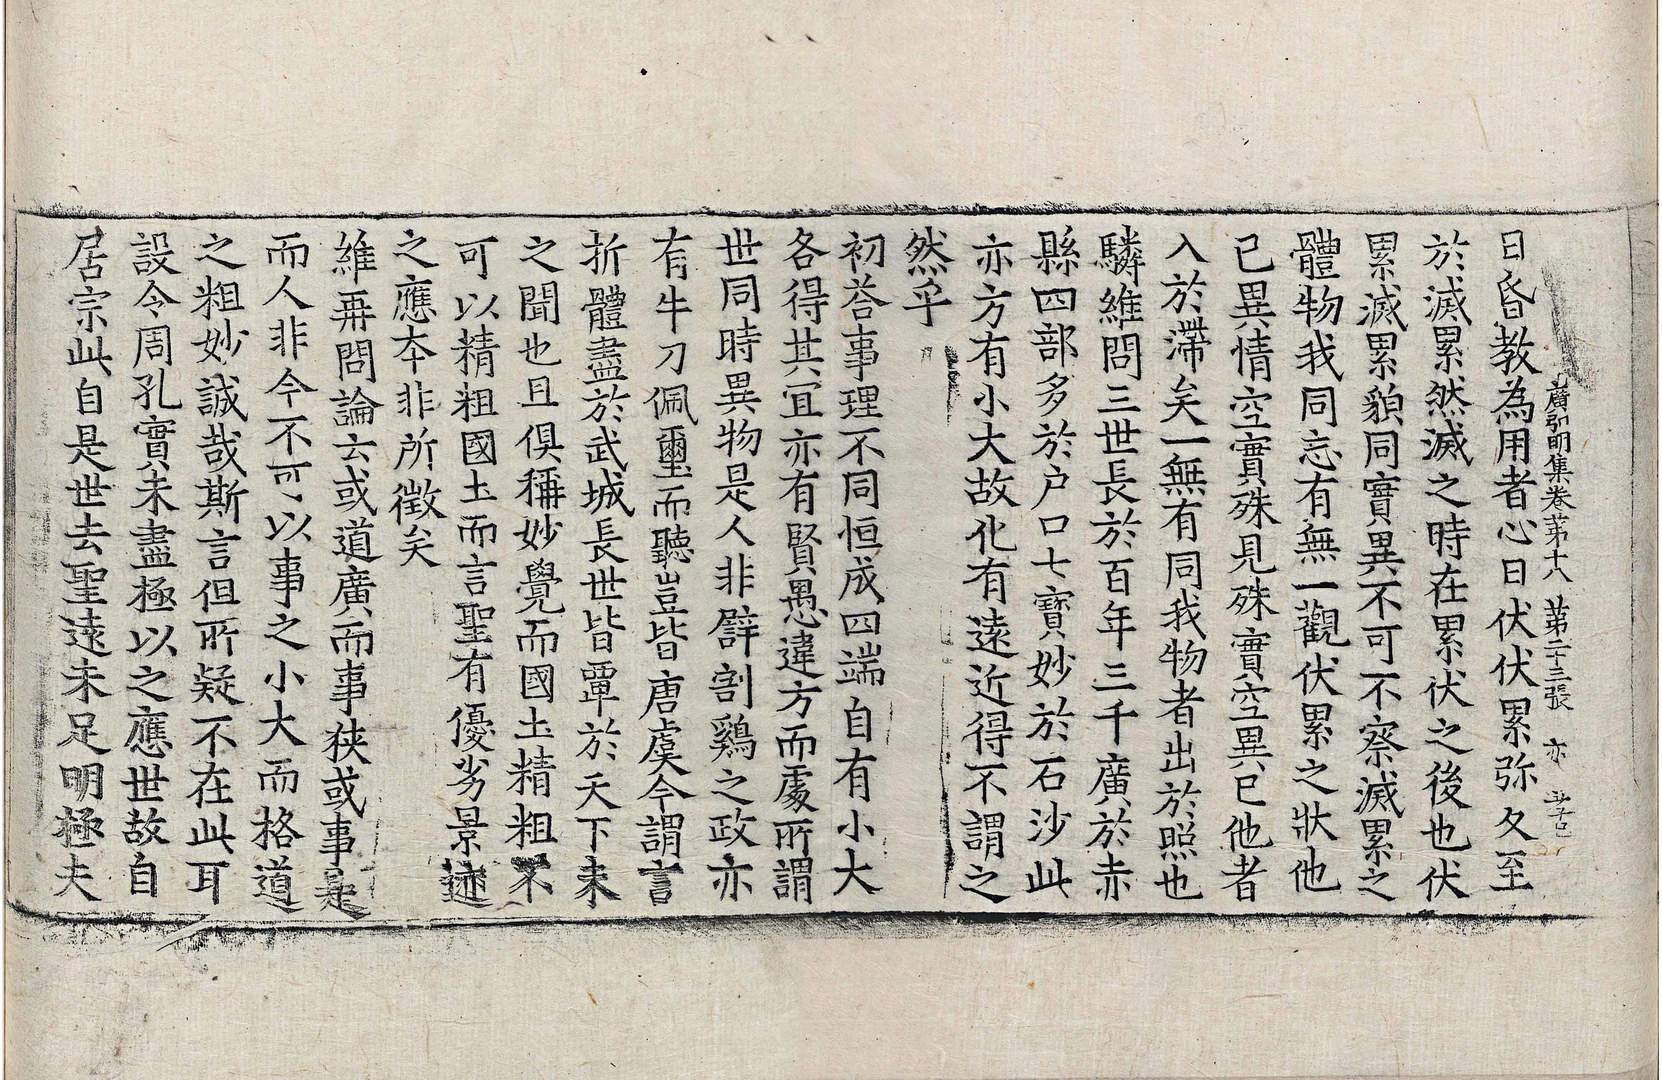 廣弘明集卷第十八 第二十三張 亦
日昏教為用者心日伏伏累弥久至
於滅累然滅之時在累伏之後也伏
累滅累貌同實異不可不察滅累之
體物我同忘有無一觀伏累之狀他
已異情空實殊見殊實空異已他者
入於滯矣一無有同我物者出於照也
驎維問三世長於百年三千廣於赤
縣四部多於户口七寶妙於石沙此
亦方有小大故化有遠近得不謂之
然乎
初荅事理不同恒成四端自有小大
各得其宜亦有賢愚違方而處所謂
世同時異物是人非譬割鷄之政亦
有牛刀佩璽而聽豈皆唐虞今謂言
折體盡於武城長世皆覃於天下未
之聞也且俱稱妙覺而國土精粗不
可以精粗國土而言聖有優劣景迹
之應夲非所徵矣
維再問論云或道廣而事狹或事是
而人非今不可以事之小大而格道
之粗妙誠哉斯言但所疑不在此耳
設令周孔實未盡極以之應世故自
居宗此自是世去聖遠未足明極夫